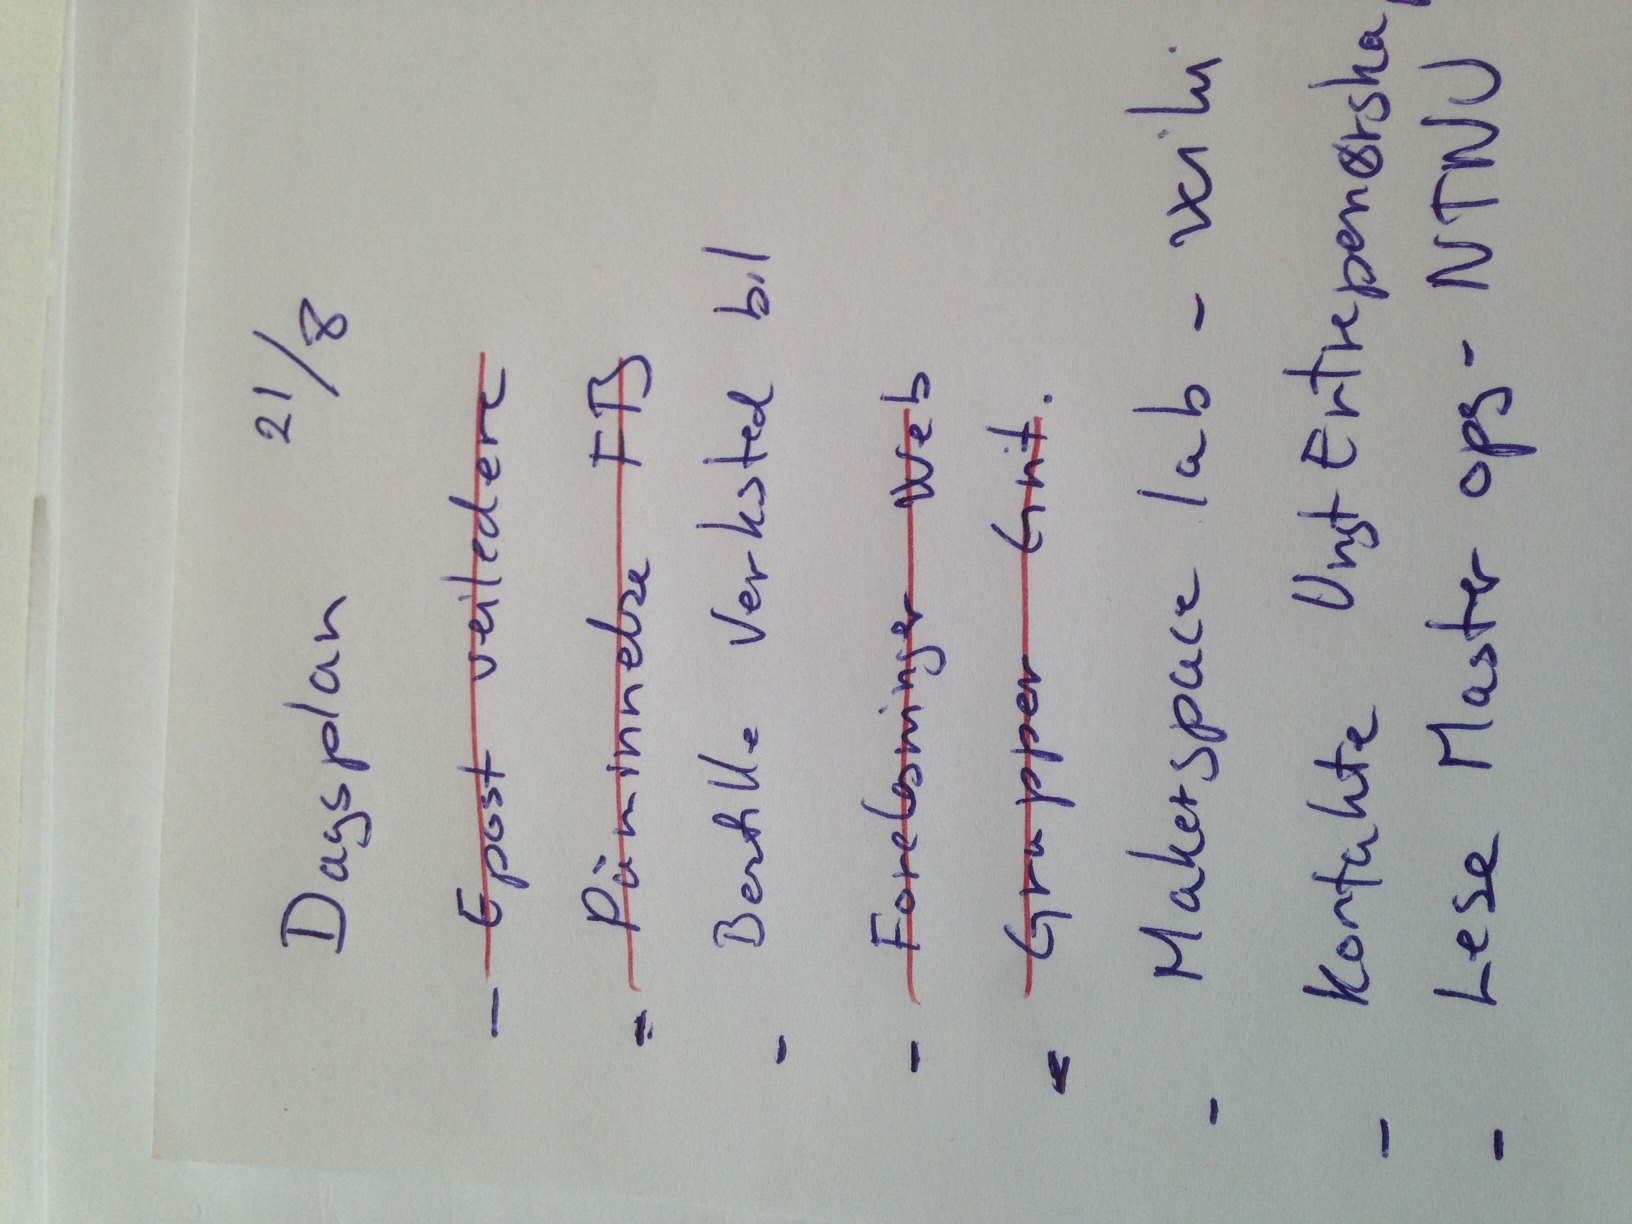 Dagsplan 21/8
- Epost veiledere
- Påminnelse FB
- Bestille verksted bil
- Forelesninger Web
- Grupper Gnit.
- Makerspace lab - wiki
- Kontakte Ungt Entreprenørskap
- Lese Master opg - NTNU